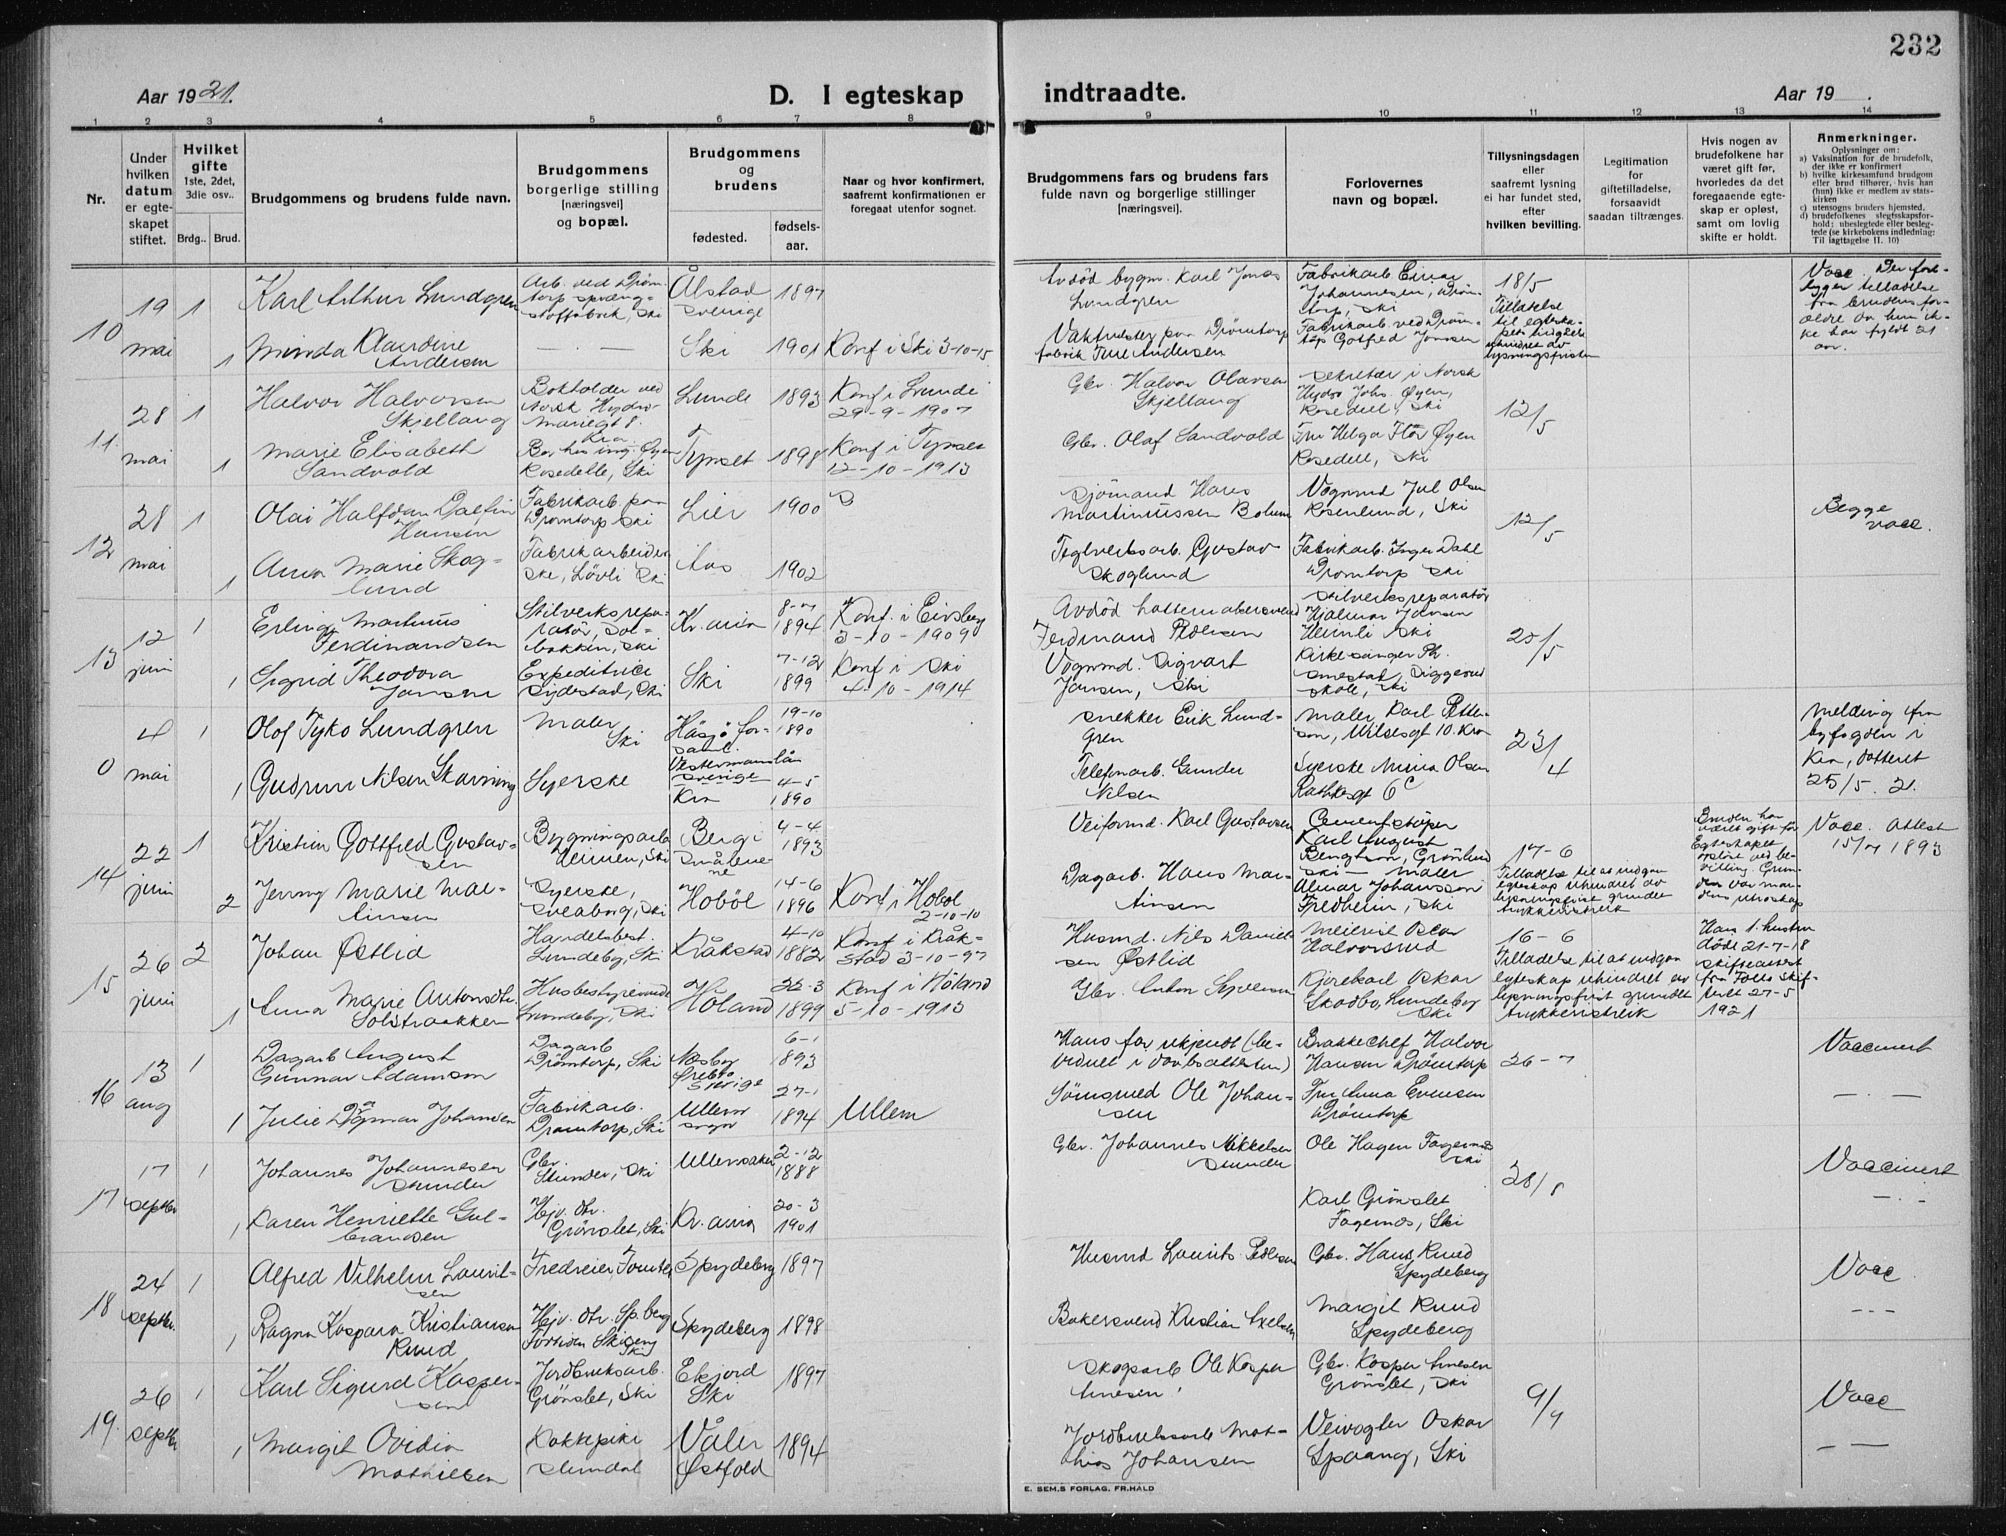 232
Aar 1921.
D. I egteskap
indtraadte.
Aar 19 .
1 2 3 4 5 6 7 8 9 10 11 12 13 14
Nr.
Under
hvilken
datum
er egte-
skapet
stiftet.
Hvilket
gifte
1ste, 2det,
3die osv..
Brdg.. Brud.
Brudgommens og brudens fulde navn.
Brudgommens
borgerlige stilling
[næringsvei]
og bopæl.
Brudgommens
og
brudens
fødested.
fødsels-
aar.
Naar og hvor konfirmert,
saafremt konfirmationen er
foregaat utenfor sognet.
Brudgommens fars og brudens fars
fulde navn og borgerlige stillinger
[næringsvei].
Forlovernes
navn og bopæl.
Tillysningsdagen
eller
saafremt lysning
ei har fundet sted,
efter
hvilken bevilling.
Legitimation
for
giftetilladelse,
forsaavidt
saadan tiltrænges.
Hvis nogen av
brudefolkene har
været gift før,
hvorledes da det
foregaaende egte-
skap er opløst,
samt om lovlig
skifte er holdt.
Anmerkninger.
Oplysninger om:
a) Vaksination for de brudefolk,
der ikke er konfirmert
b) hvilke kirkesamfund brudgom
eller brud tilhører, hvis han
(hun) ikke er medlem av stats-
kirken
c) utensogns bruders hjemsted,
d) brudefolkenes slegtsskapsfor-
hold; ubeslegtede eller besleg-
tede (se kirkebokens indledning:
Til iagttagelse II. 10)
10
19
mai
1
Karl Arthur Lundgren
Arb. ved Drøm-
torp spræng-
stoffabrik, Ski
Ålstad
Sverige
1897
Avdød bygm. Karl Jonas
Lundgren
Fabrikarb Einar
Johannesen, Drøm-
torp, Ski
18/5
Tilladelse
til egteska-
pets
uhindret av
lysningsfristen
Vacc. Der fore-
ligger tilladelse
fra brudens for-
ældre da hun ik-
ke har fyldt 21
aar.
1
Minda Klaudine
Andersen
— . —
Ski
1901
Konf i Ski 3-10-15
Vaktmester paa Drømtorp
fabrik Ture Andersen
Fabrikarb ved Drøm-
torp Gotfred Jonssen
11
28
mai
1
Halvor Halvorsen
Skjellaug
Bokholder ved
Norsk Hydro
Mariegt 8.
Kra
Lunde
1893
Konf i Lunde
29-9-1907
Gbr. Halvor Olavsen
Skjellaug
Sekretær i Norsk
Hydro Johs. Øyen,
Rosedell, Ski
12/5
1
Marie Elisabeth
Sandvold
Bor hos ing. Øyen
Rosedelle, Ski
Tynset
1898
Konf i Tynset
12-10-1913
Gbr. Olaf Sandvold
Fru Helga Flör Øyen
Rosedell, Ski
12
28
mai
1
Olai Halfdan Dalfin
Hansen
Fabrikarb paa
Drømtorp Ski
Lier
1900
Sjømand Hans
Martiniussen Bolum
Vognmd Jul Olsen
Rosenlund, Ski
12/5
Begge
vacc.
1
Anna Marie Skog-
lund
Fabrikarbeider
ske, Lövli Ski
Aas
1902
Teglverksarb. Gustav
Skoglund
Fabrikarb. Inger Dahl
Drømtorp Ski
13
12
juni
1
Erling Martinius
Ferdinandsen
Stilverksrepa-
ratør, Sol-
bakken, Ski
Kr.ania
8-7
1894
Konf. i Eidsberg
3-10-1909
Avdød hattemakersvend
Ferdinand Pedersen
Stilverksreparatør
Hjalmar Jansen
Heimli Ski
25/5
1
Sigrid Theodora
Jansen
Expeditrice
Sydestad, Ski
Ski
7-12
1899
Konf i Ski
4-10-1914
Vognmd. Sigvart
Jansen, Ski
Kirkesanger Ph.
Smestad, Siggerud
skole, Ski
0
4
mai
1
Olof Tyko Lundgren
Maler
Ski
Häsjö for-
saml.
Vestermanslän
Sverige
19-10
1890
Snekker Erik Lund-
gren
Maler Karl Petter-
son, Wilsesgt 10. Kra
23/4
Melding fra
byfogden i
Kra, datteret
25/5. 21.
1
Gudrun Nilsen Skarning
Syerske
Kra
4-5
1890
Telefonarb. Gunder
Nilsen
Syerske Minna Olsen
Rathkesgt 6c
14
22
juni
1
Kristian Gottfred Gustav-
sen
Bygningsarb
Hennum, Ski
Berg i
Smålene-
ne
4-4
1893
Veiformd. Karl Gustavsen
Cementstøper
Karl August
Bengtson, Grønlund
Ski
17-6
Tilladelse til at indgaa
egteskap uhindret av
lysningsfrist grundet
trykkeristreik
Bruden har
været gift før
Egteskapet
opløst ved be-
villing Grun-
den var man-
dens utroskap
Vacc. attest
15/7 1893
2
Jenny Marie Mar-
tinsen
Syerske,
Sveaborg, Ski
Hobøl
14-6
1896
Konf i Hobøl
2-10-10
Dagarb. Hans Mar-
tinsen
Maler
Almar Johansson
Fredheim, Ski
15
26
juni
2
Johan Østlid
Handelsbest.
Lundeby, Ski
Kråkstad
4-10
1882
Konf i Kråk-
stad 3-10-97
Husmd. Nils Daniel-
sen Østlid
Meierist Oscar
Halvorsrud
16-6
Tilladelse til at indgaa
egteskap uhindret av
lysningsfrist grundet
trykkeristreik
Hans 1. hustru
døde 21-7-18
Skifteattest
fra Follo skif-
terett 27-5
1921
1
Anna Marie Antonsdtr.
Solstraakken
Husbestyrerinde
Lundeby, Ski
Höland
22-3
1899
Konf i Höland
5-10-1913
Gbr. Anton Syversen
Kjørekarl Oskar
Skodbo, Lundeby
Ski
16
13
aug
1
Dagarb August
Gunnar Adamson
Dagarb
Drømtorp, Ski
Næsby
Örebro
Sverige
6-1
1893
Hans far ukjendt (be-
vidnet i daabsattesten)
Brakkechef Halvor
Hansen Drømtorp
26-7
Vaccinert
1
Julie Dagmar Johansen
Fabrikarb.
Drømtorp, Ski
Ullern
sogn
27-1
1894
Ullern
Sömsmed Ole Johan-
sen
Fru Anna Evensen
Drömtorp
— . —
17
17
septbr
1
Johannes Johannesen
Stunder
Gbr.
Stunder, Ski
Ullensaker
2-12
1888
Gbr. Johannes Mikkelsen
Stunder
Ole Hagen Fagernes
Ski
28/8
Vaccinert
1
Karen Henriette Gul-
brandsen
Hjv. dtr.
Grönslet, Ski
Kr.ania
20-3
1901
Karl Grønslet
Fagernes, Ski
- . -
18
24
septbr.
1
Alfred Vilhelm Laurit-
sen
Spydeberg
1897
Husmd Laurits Pedersen
Gbr. Hans Ruud
Spydeberg
Vacc
1
Ragna Kaspara Kristiansen
Ruud
Hjv. dtr. Sp.berg
Spydeberg
1898
Bakersvend Kristian Axelsen
Margit Ruud
Spydeberg
- - -
19.
26
septbr
1
Karl Sigurd Kasper-
sen
Jordbruksarb.
Grönslet, Ski
Ekjord
Ski
1897
Skogsarb Ole Kasper
Arnesen
Gbr. Kasper Arnesen
Grönslet, Ski
9/9
Vacc
1
Margit Ovidia
Mathiesen
Kokkepike
Slemdal
Våler
Østfold
1894
Jordbruksarb Mat-
hias Johansen
Veivogter Oskar
Spaang, Ski
— —
E. SEM.S FORLAG, FR.HALD